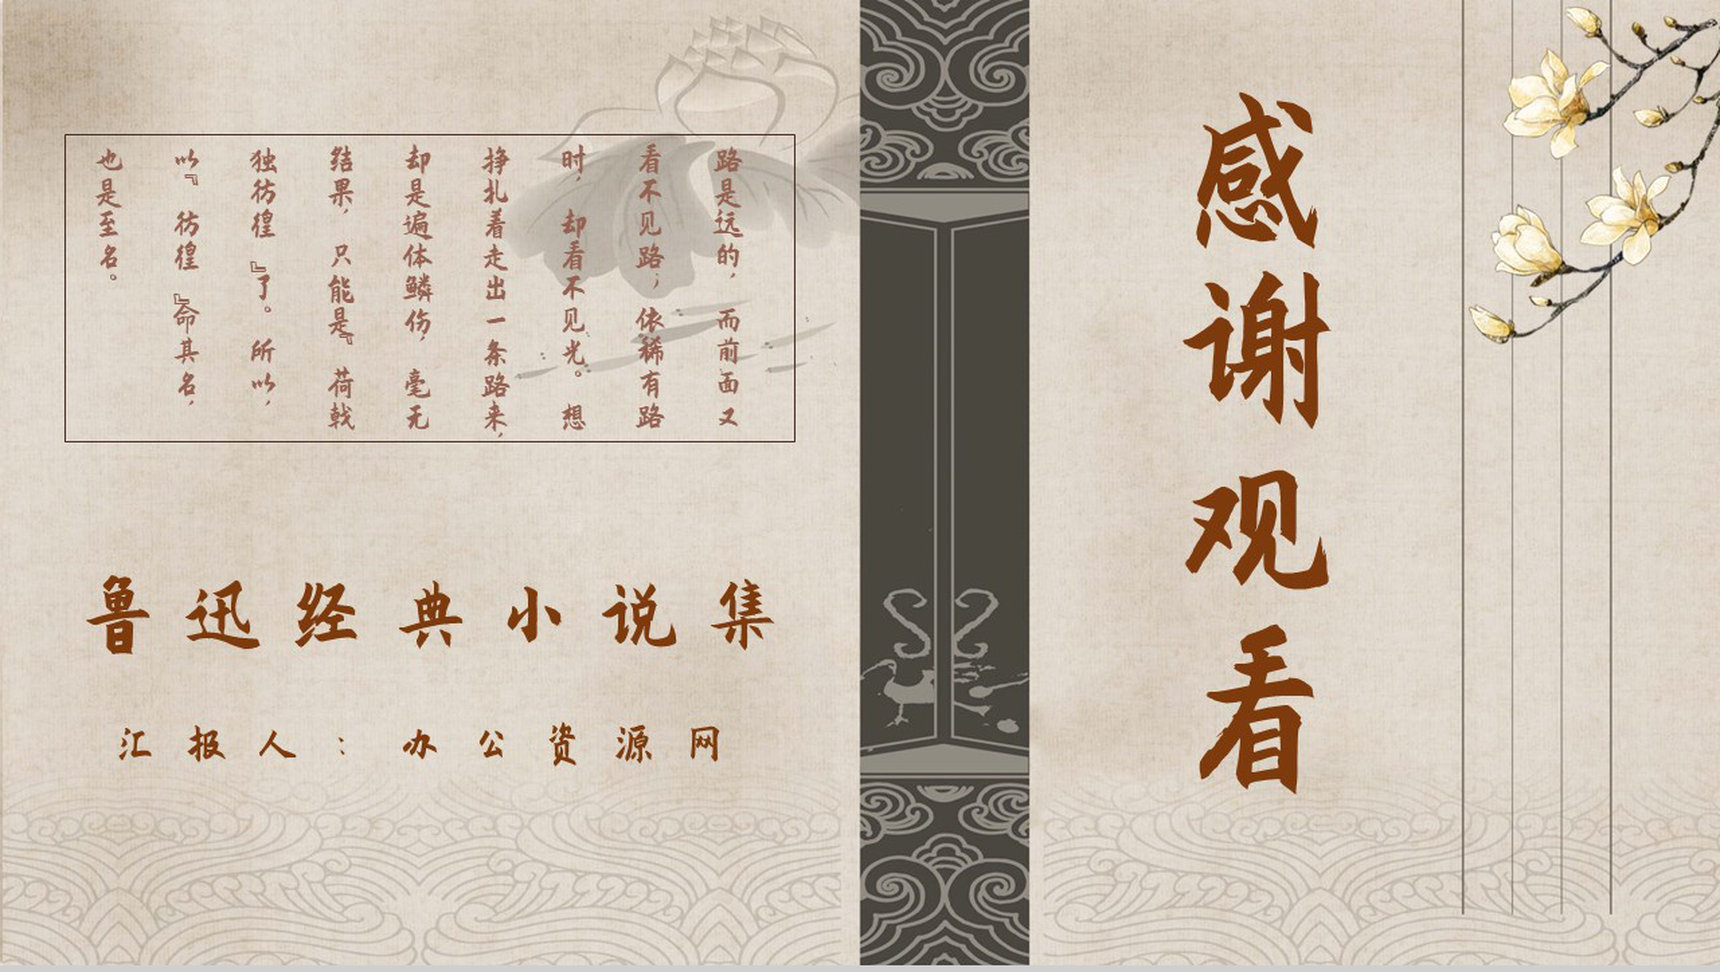 路是远的，而前面又
看不见路；依稀有路
时，却看不见光。想
挣扎着走出一条路来，
却是遍体鳞伤，毫无
结果，只能是『荷戟
独彷徨』了。所以，
以『彷徨』命其名，
也是至名。
鲁迅经典小说集
汇报人：办公资源网
感谢观看